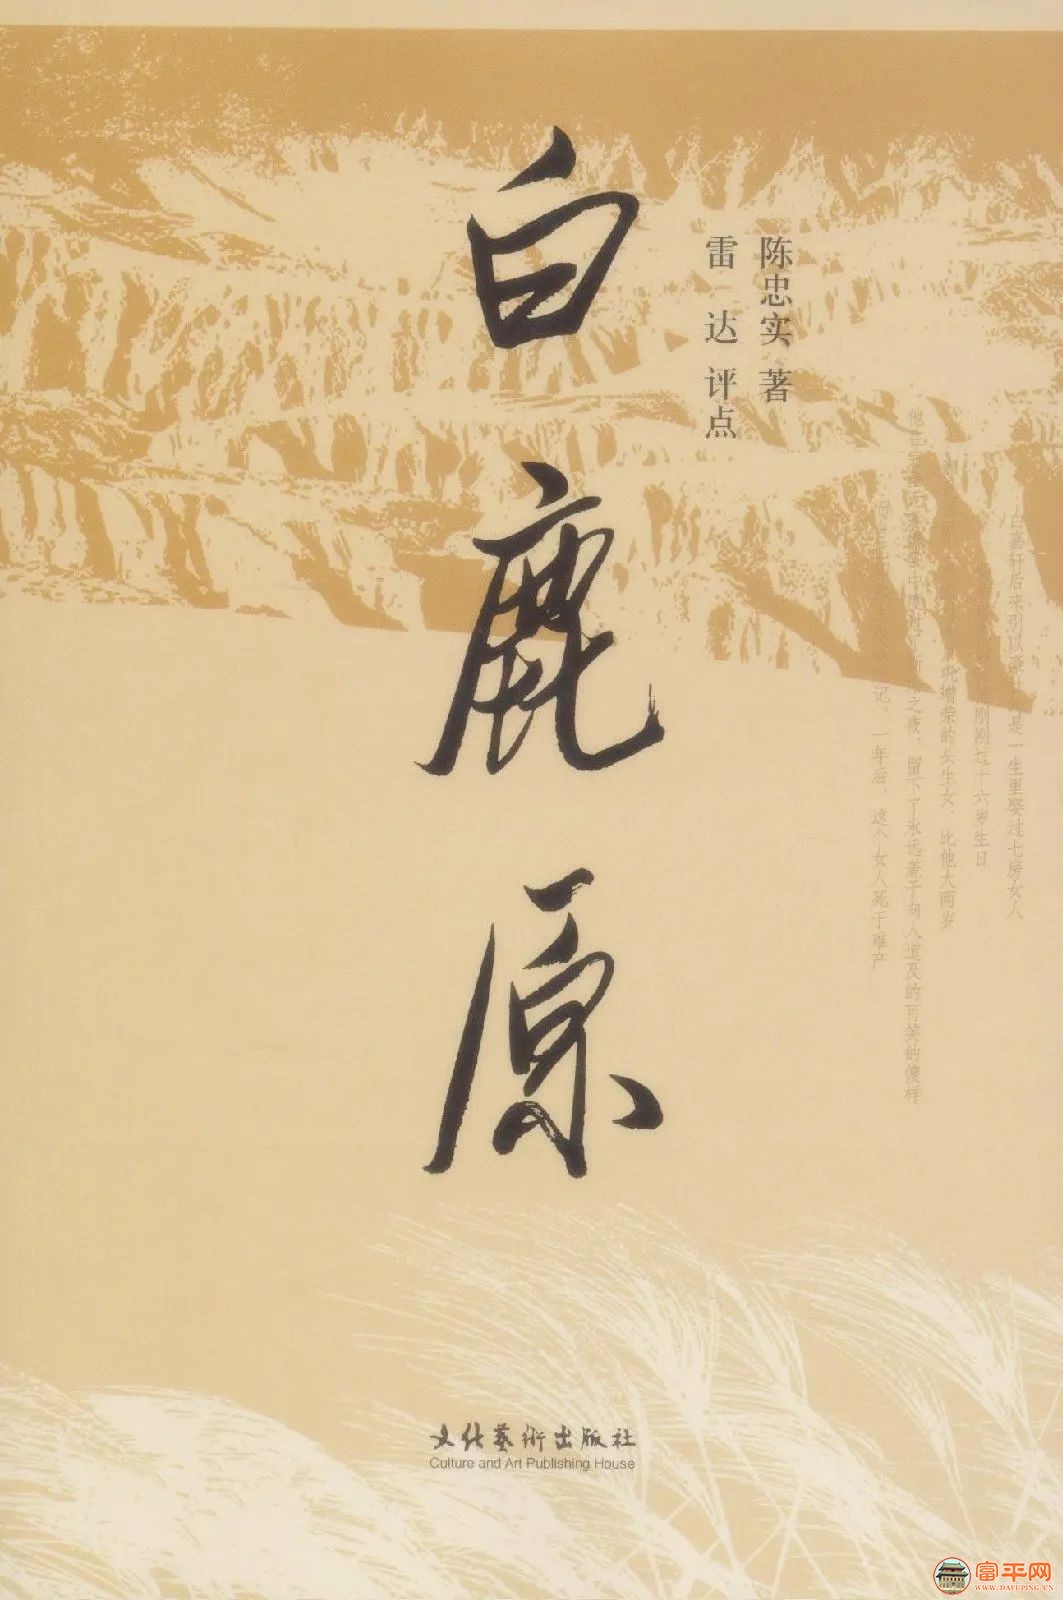 白鹿原
陈忠实 著
雷 达 评点
白嘉轩后来引以豪壮的是一生里娶过七房女人
刚刚过十六岁生日
巩增荣的头生女，比他大两岁
之夜，留下了永远羞于向人道及的可笑的傻样
记。一年后，这个女人死于难产
文化藝術出版社
Culture and Art Publishing House
富平网
WWW.DAFUPING.CN